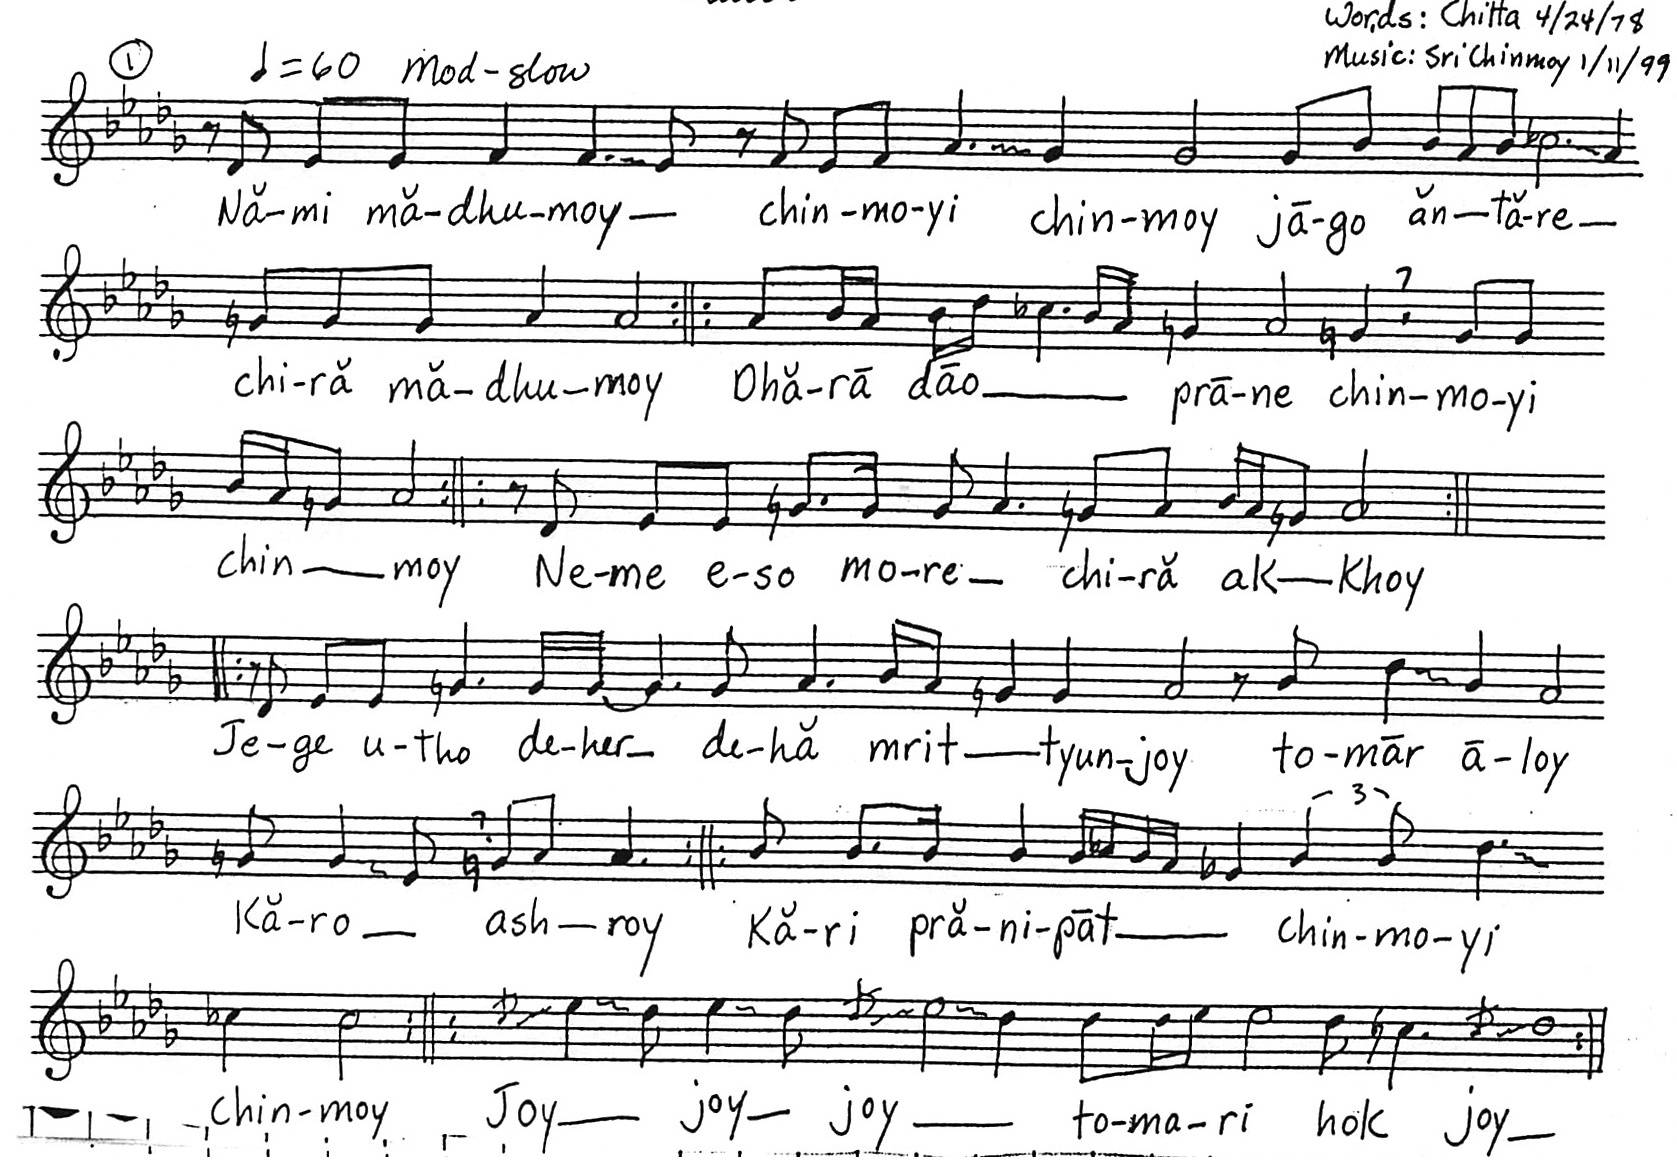 Words: Chitta 4/24/78
Music: Sri Chinmoy 1/11/99
1 ♩=60 Mod-slow
Nă-mi mă-dhu-moy— chin-mo-yi chin-moy jā-go ăn—tă-re—
chi-ră mă-dhu-moy Dhă-rā dāo— prā-ne chin-mo-yi
chin—moy Ne-me e-so mo-re— chi-ră ak—khoy
Je-ge u-tho de-her— de-hă mrit—tyun-joy to-mār ā-loy
3
Kă-ro— ash-roy Kă-ri pră-ni-pāt— chin-mo-yi
chin-moy Joy— joy— joy— to-ma-ri hok joy—